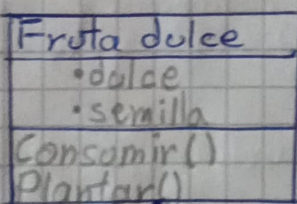 Fruta dulce
•dulce
•semilla
Consumir()
Plantar()